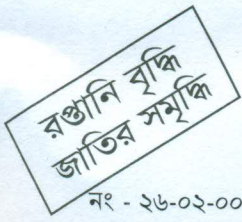 রপ্তানি বৃদ্ধি
জাতির সমৃদ্ধি
নং - ২৬-০২-০০